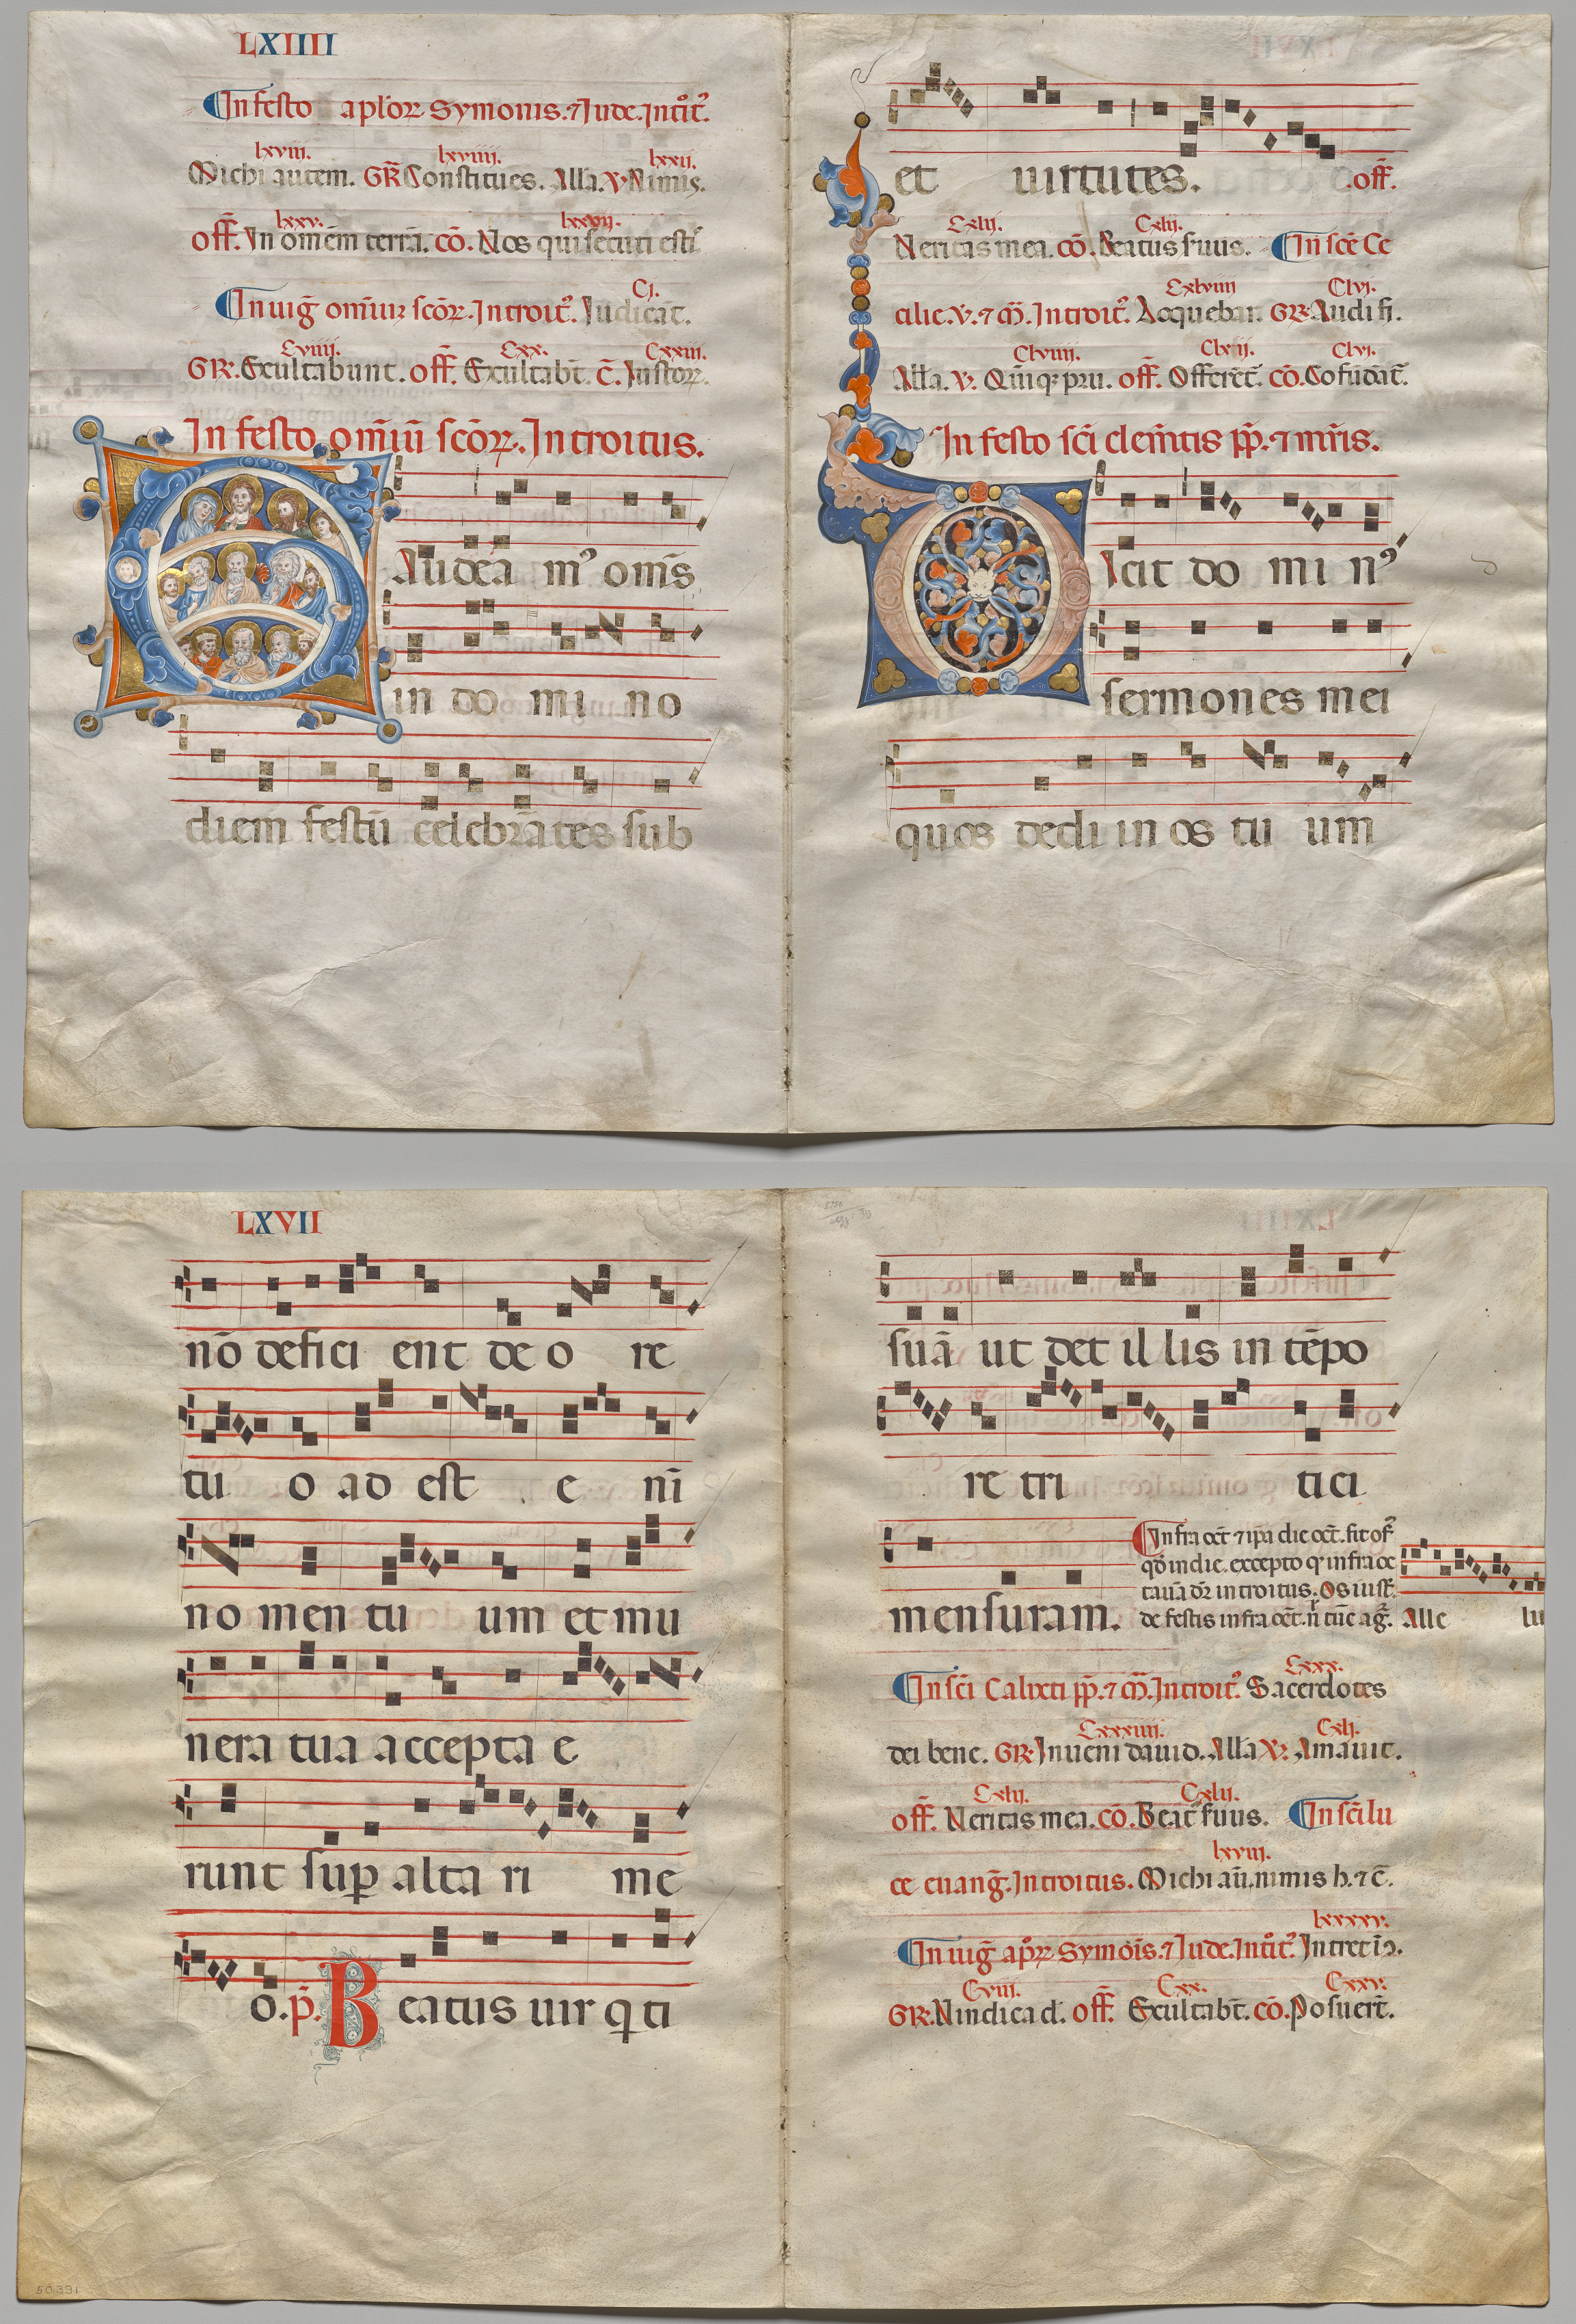 LXIIII
In festo aplor̄ Symonis. ⁊ Jude. Introit᷒.
lxviii. lxviiii. lxxii.
Michi autem. GR̄ Constitues. Alla. V. Nimis.
lxxv. lxxvii.
off̄. In om̄em terrā. cō. Nos qui secuti esti᷒
Cj.
In uiḡ om̄iuꝫ scōꝝ. Introit᷒. Iudicāt.
Cviiij. Cxx. Cxxiii.
GR. Exultabunt. off̄. Exultabt̄. c̄. Iustoꝝ.
In festo om̄iū scōꝝ. Introitus.
GAudeā m᷒ om̄s
in do mi no
diem festū celebrātes sub
et uirtutes. off̄.
Cxlij. Cxlij.
Ueritas mea. cō. Beatus suus. In scē Ce
Cxlviiii Clvj.
cilie. v. ⁊ m̄. Introit᷒. Loquebar. GR. Audi fi.
Clviiij. Clvj.
Alla. v. Quīqꝫ pru. off̄. Offerēt᷒. cō. Cofūdāt᷒.
In festo scī clem̄tis pp̄. ⁊ mr̄is.
DIcit do mi n᷒
sermones mei
quos dedi in os tu um
LXVII
nō defici ent de o re
tu o ad est e nī
no men tu um et mu
nera tua accepta e
runt sup̱ alta ri me
o. p̄. Beatus uir q ti
suā ut det il lis in tēpo
re tri tici
Infra oct̄ ⁊ ipa die oct̄. fit of᷒
qd̄ in die. excepto q᷒ infra oc
tauā dr̄ introitus. Os iust̄.
mensuram. de festis infra oct̄. n̄ tūc ag᷒. Alle lu
Cxxx.
In scī Calixti pp̄. ⁊ m̄. Introit᷒. Sacerdotes
Cxxxiiii. Cxlj.
dei bene. GR. Inueni dauid. Alla V. Amauit.
Cxlij. Cxlij.
off̄. Ueritas mea. cō. Beat᷒ suus. In scī lu
lxviij.
ce euanḡ. Introitus. Michi aū. nimis h. ⁊ c̄.
lxxxxv.
In uiḡ ap̄oꝝ Symōis. ⁊ Jude. Intōit᷒. Intret ī
Cviii. Cxx. Cxxv.
GR. Uindica d. off̄. Exultabt̄. cō. Posuert̄.
50.391